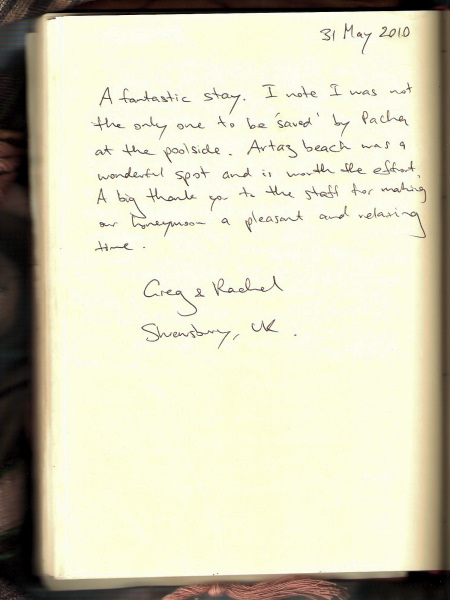 31 May 2010
A fantastic stay. I note I was not
the only one to be 'saved' by Pacha
at the poolside. Artaz beach was a
wonderful spot and is worth the effort.
A big thank you to the staff for making
our honeymoon a pleasant and relaxing
time.
Greg & Rachel
Shrewsbury, UK.